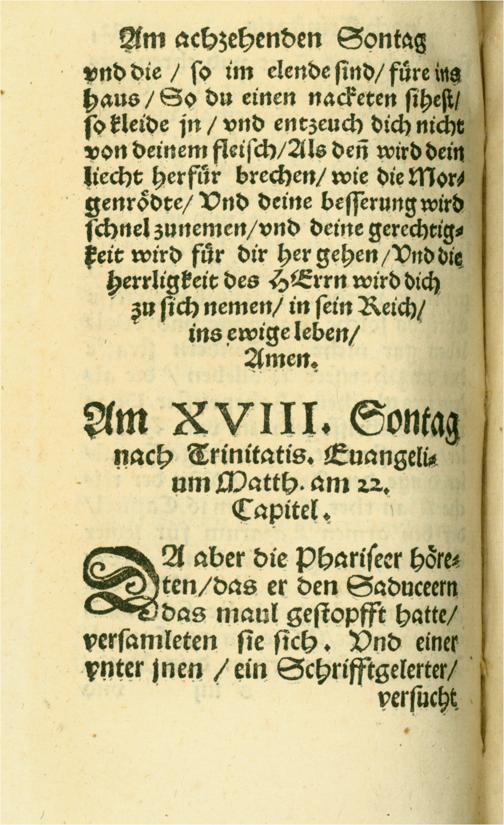 Am achzehenden Sontag
vnd die / so im elende sind/ füre ins
haus / So du einen nacketen sihest/
so kleide jn / vnd entzeuch dich nicht
von deinem fleisch/Als deñ wird dein
liecht herfür brechen/ wie die Mor⸗
genrödte/ Vnd deine besserung wird
schnel zunemen/vnd deine gerechtig⸗
keit wird für dir her gehen/Vnd die
herrligkeit des HErrn wird dich
zu sich nemen/ in sein Reich/
ins ewige leben/
Amen.
Am XVIII. Sontag
nach Trinitatis. Euangeli⸗
um Matth. am 22.
Capitel.
DA aber die Phariseer höre⸗
ten/das er den Saduceern
das maul gestopfft hatte/
versamleten sie sich. Vnd einer
vnter jnen / ein Schrifftgelerter/
versucht